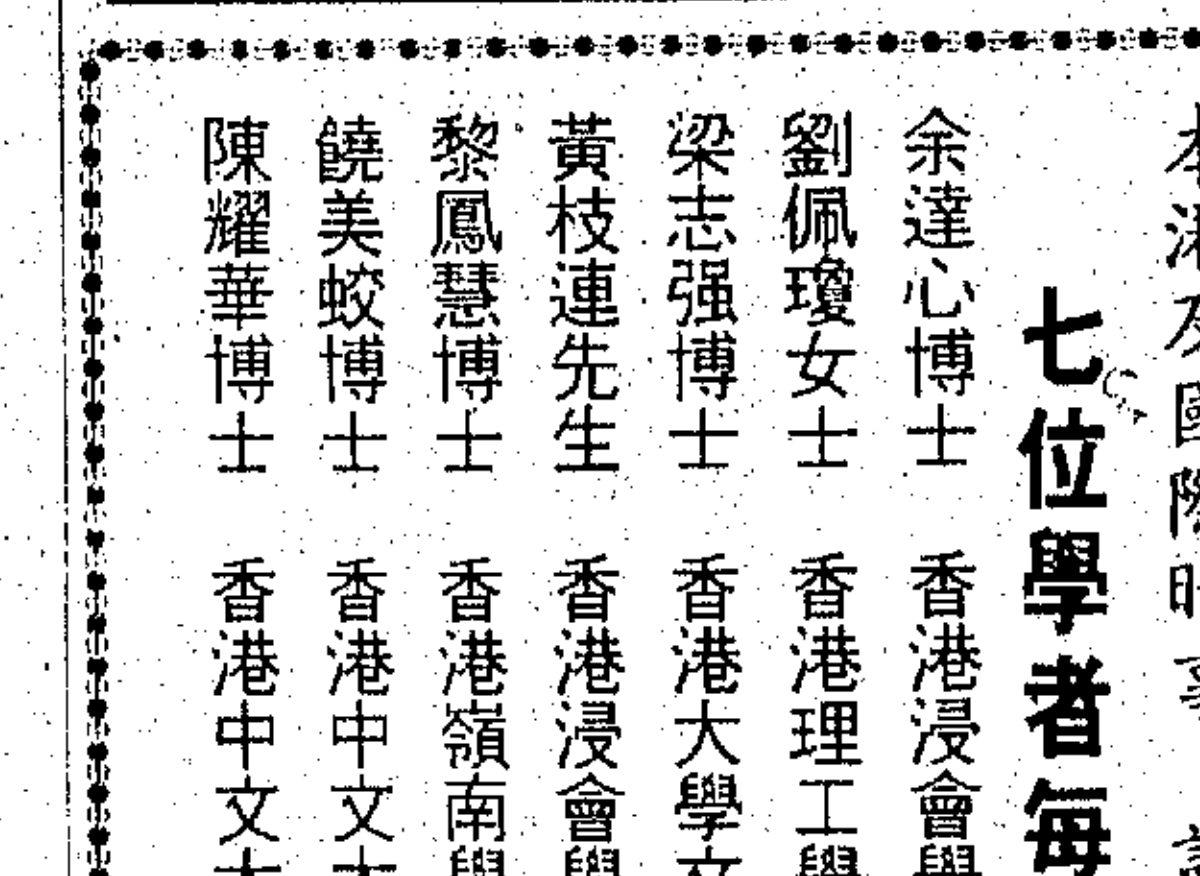 本港及國際時
七位學者每
余達心博士 香港浸會學
劉佩瓊女士 香港理工學
梁志强博士 香港大學文
黃枝連先生 香港浸會學
黎鳳慧博士 香港嶺南學
饒美蛟博士 香港中文大
陳耀華博士 香港中文大